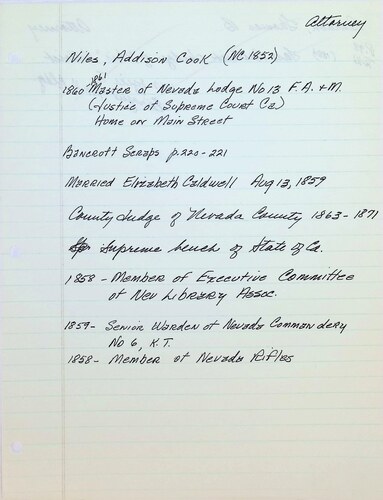 Attorney
Niles, Addison Cook (NC 1852)
1861
1860 Master of Nevada Lodge No 13 F. A. + M.
(Justice of Supreme Court Ca.)
Home on Main Street
Bancroft Scraps p. 220-221
Married Elizabeth Caldwell Aug 13, 1859
County Judge of Nevada County 1863-1871
Supreme bench of State of Ca.
1858 - Member of Executive Committee
of Nev Library Assoc.
1859 - Senior Warden of Nevada Commandery
No 6, K.T.
1858 - Member of Nevada Rifles